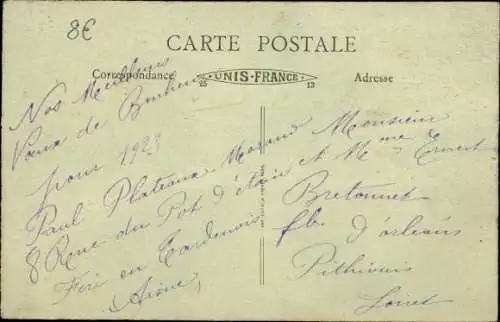 8€
CARTE POSTALE
Correspondance
UNIS-FRANCE
25 13
Adresse
Nos Meilleurs
Vœux de Bonheur
pour 1923
Paul Plateaux Morand
8 Rue du Pot d'étain
Fère en Tardenois
(Aisne)
Monsieur
et Mme Ernest
Bretonnet
fb. d'orleans
Pithiviers
Loiret